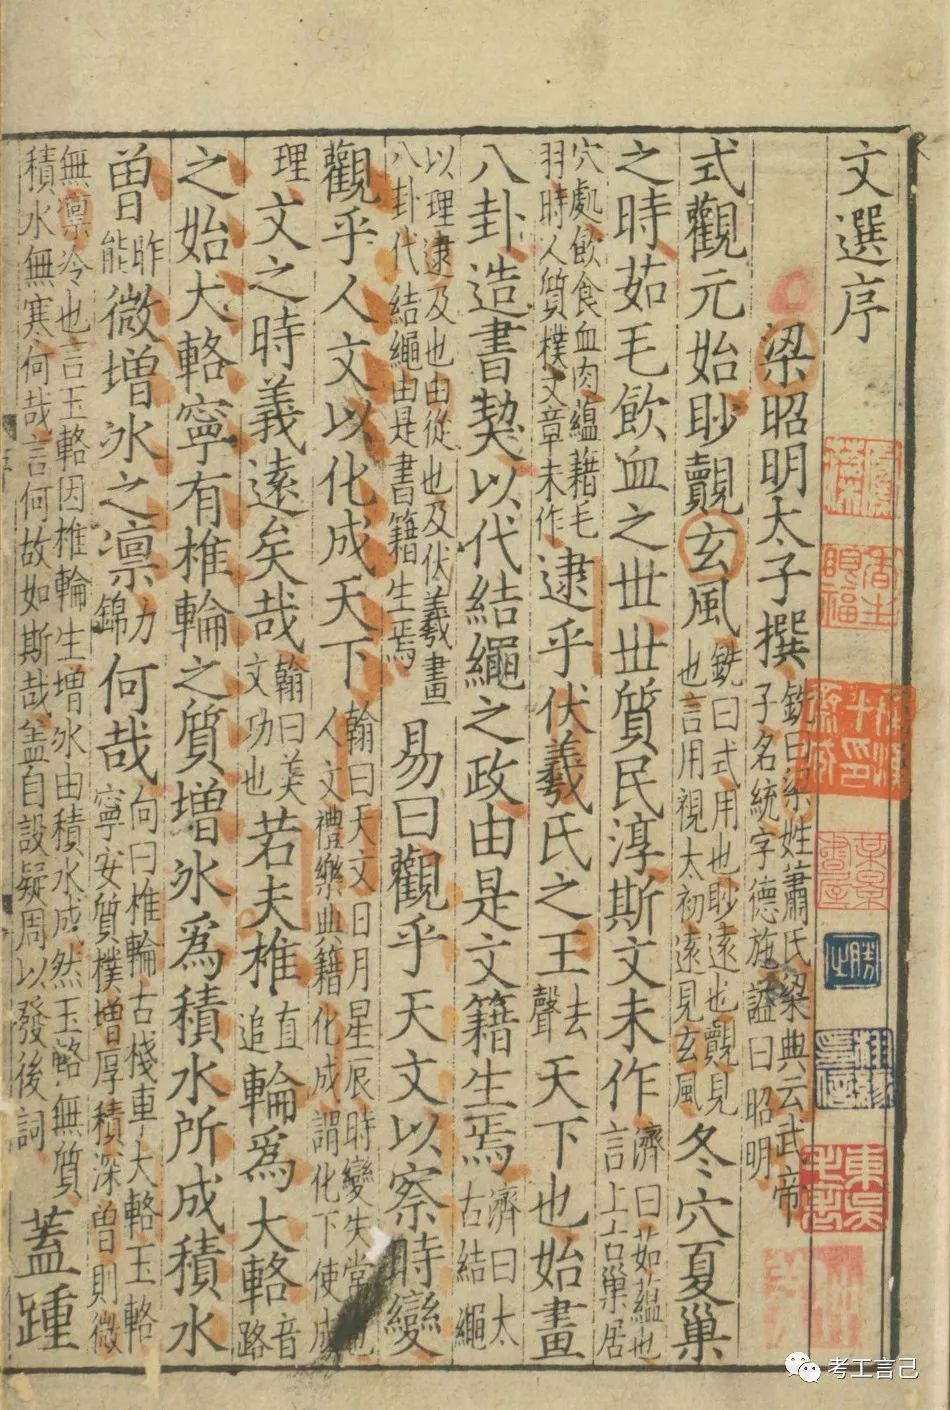 文選序
梁昭明太子撰 銑曰梁姓蕭氏梁典云武帝子名統字德施謚曰昭明
式觀元始眇覿玄風 銑曰式用也眇遠也覿見也言用視太初遠見玄風 冬穴夏巢
之時茹毛飲血之丗丗質民淳斯文未作 濟曰茹蕰也言上古巢居
穴處飲食血肉蕰藉毛羽時人質樸文章未作 逮乎伏羲氏之王 去聲 天下也始畫
八卦造書契以代結繩之政由是文籍生焉 濟曰太古結繩
以理逮及也由從也及伏羲畫八卦代結繩由是書籍生焉 易曰觀乎天文以察時變
觀乎人文以化成天下 翰曰天文日月星辰時變失常也人文禮樂典籍化成謂化下使成
理 文之時義遠矣哉 翰曰美文功也 若夫椎 直追 輪爲大輅 音路
之始大輅寧有椎輪之質增冰爲積水所成積水
曽 昨能 微增冰之凛 力錦 何哉 向曰椎輪古棧車大輅玉輅寧安質樸增厚積深曽則微
無凛冷也言玉輅因椎輪生増冰由積水成然玉輅無質積水無寒何哉言何故如斯哉盖自設疑周以發後詞 蓋踵
考工言己